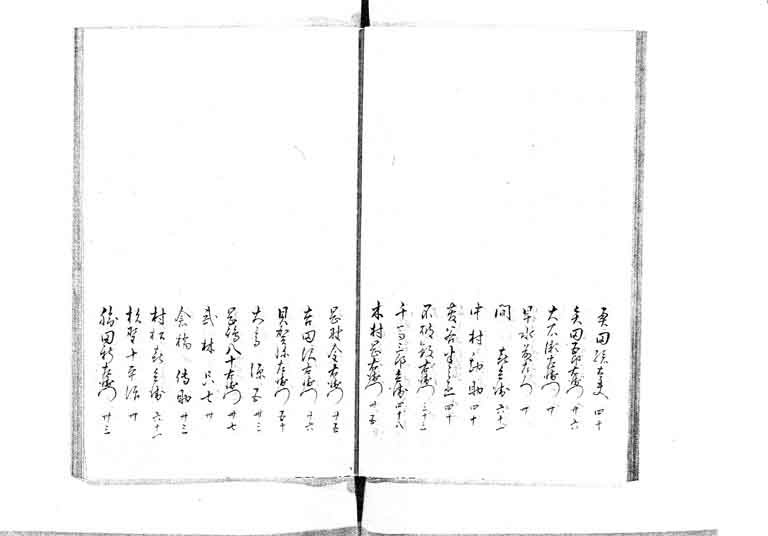 奥田孫太夫 四十
矢田五郎右衛門 廿六
大石瀬左衛門 廿
早水藤左衛門 廿
間 喜兵衛 六十一
中村勘助 四十
菅谷半之丞 四十
不破数右衛門 三十三
千馬三郎兵衛 四十八
木村岡右衛門 廿五
岡野金右衛門
吉田沢右衛門
貝賀弥左衛門 五十
大高源五 廿三
岡嶋八十右衛門 廿七
武林只七 廿
倉橋傳助 廿三
村松喜兵衛 六十一
杉野十平次 廿
勝田新左衛門 廿三